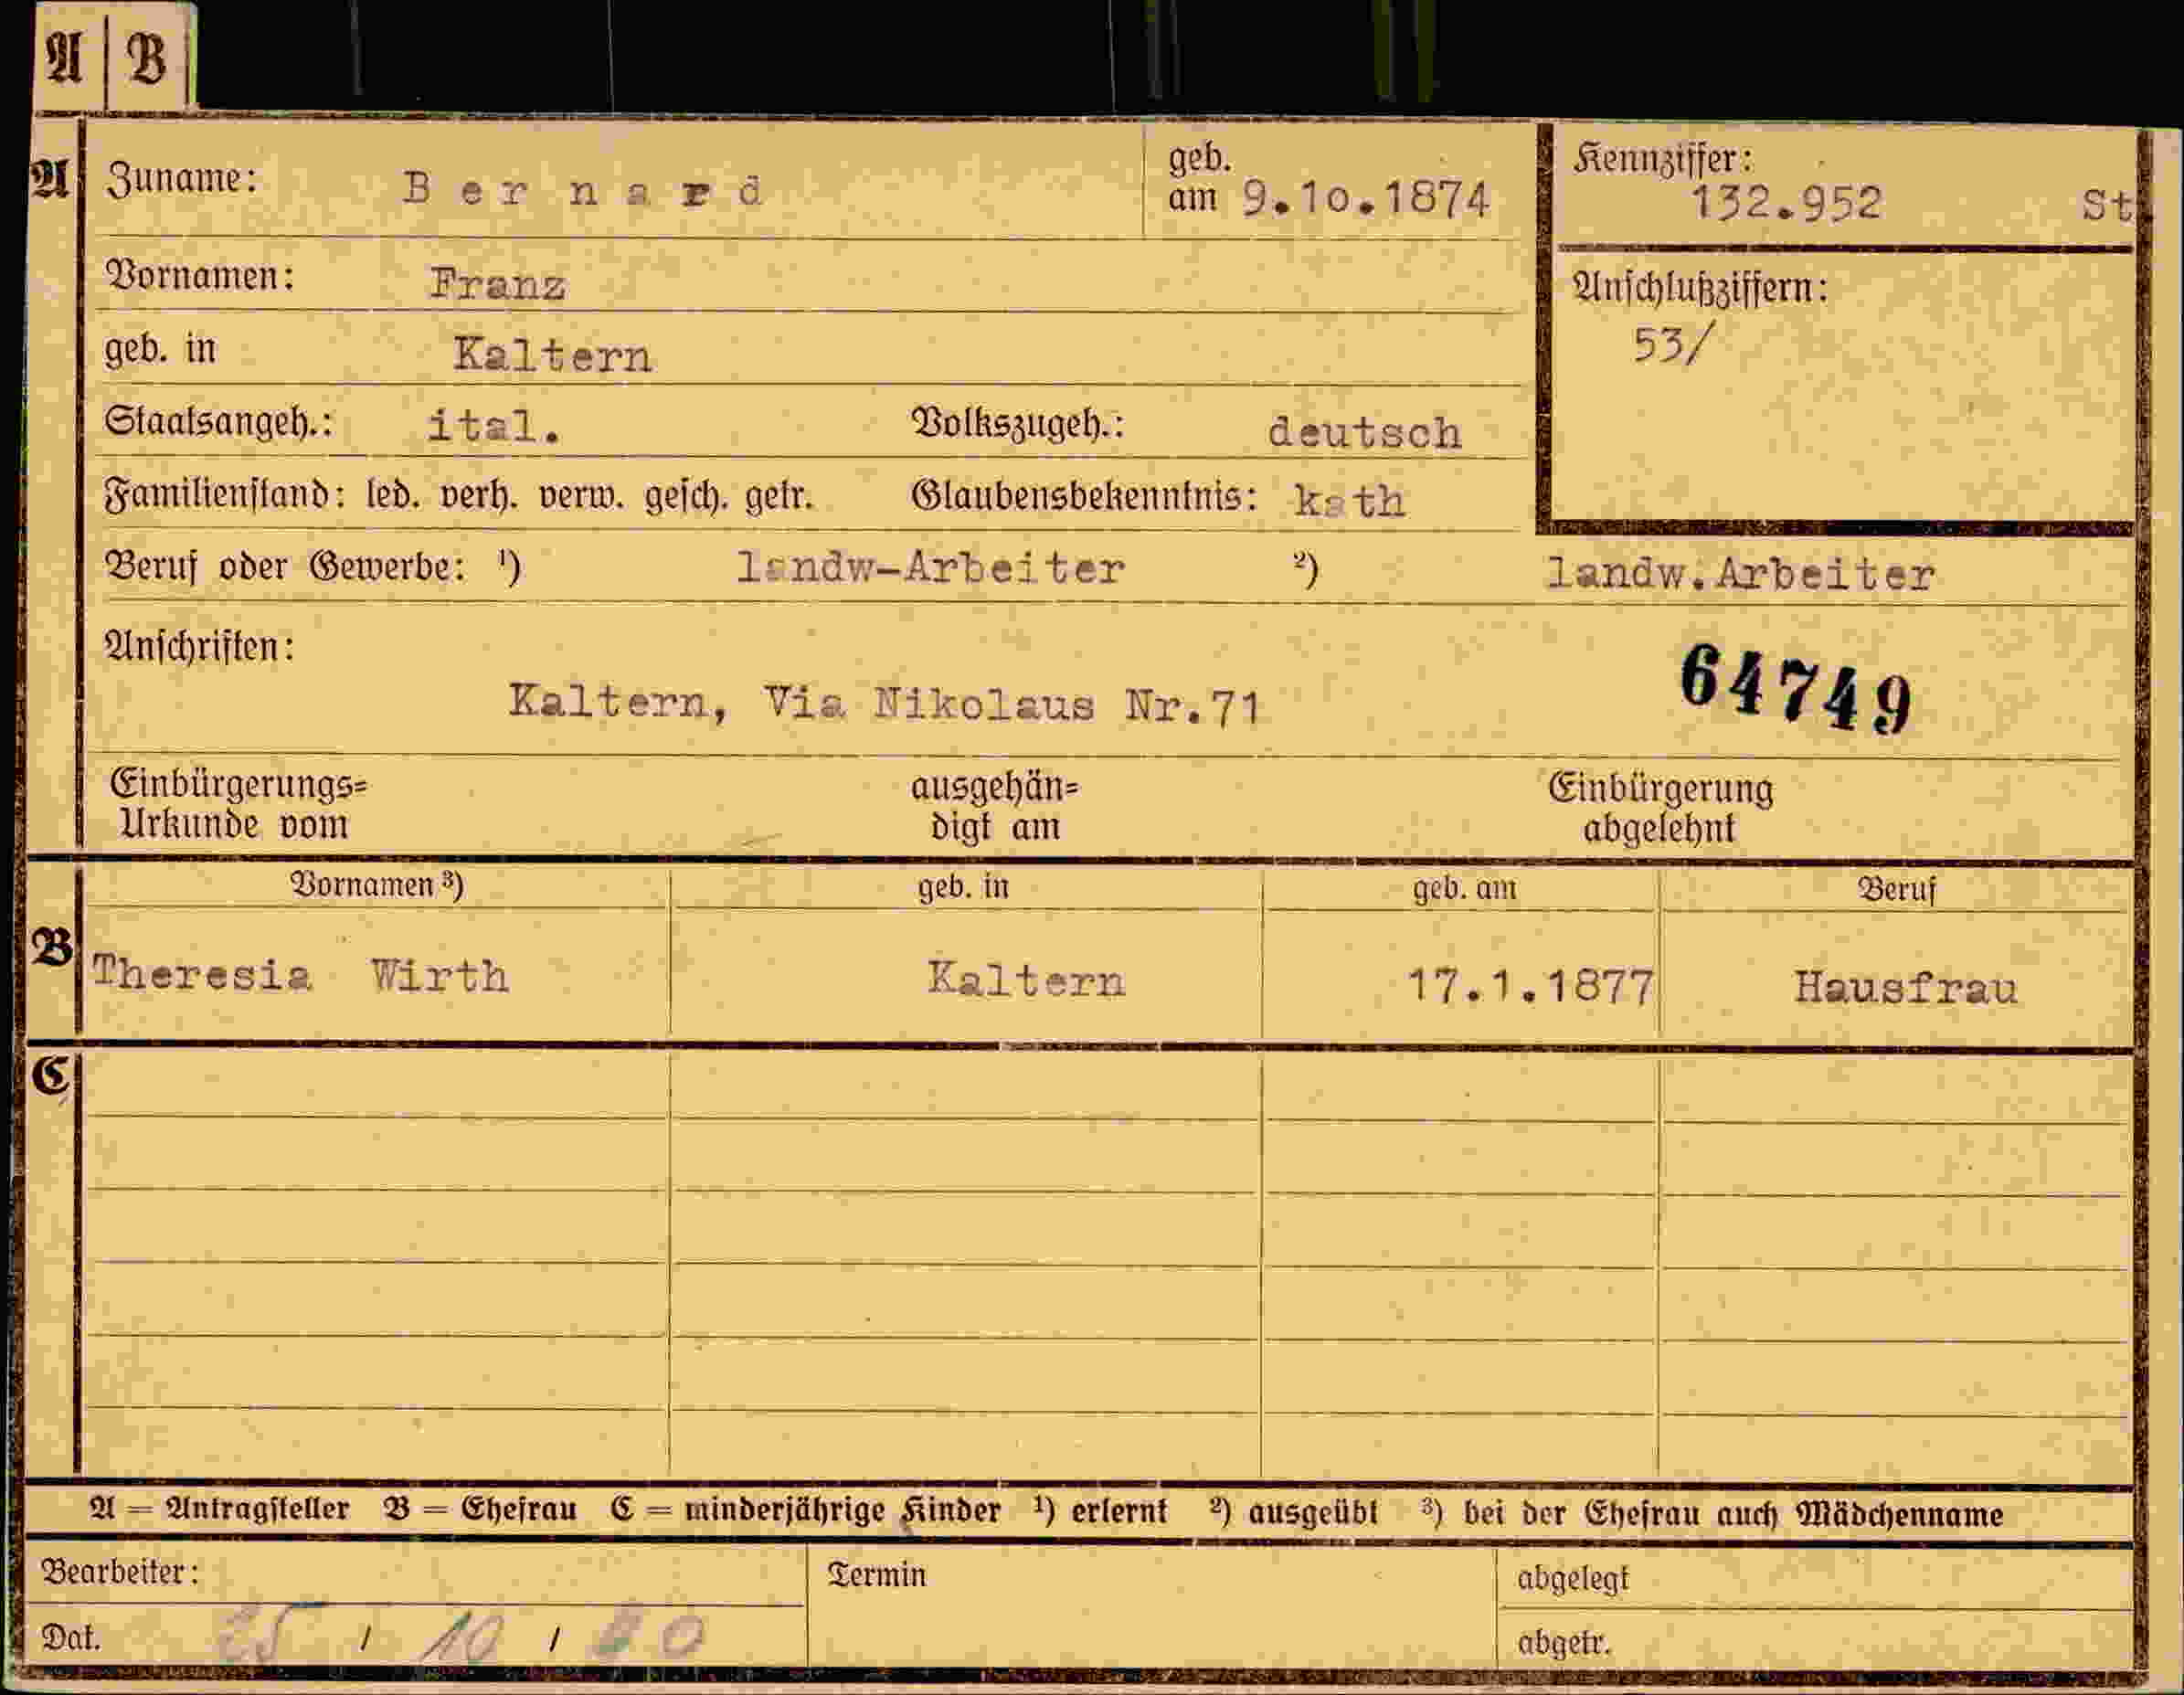 A B
A Zuname: Bernard geb. am 9.10.1874 Kennziffer: 132.952 St
Vornamen: Franz Anschlußziffern:
geb. in Kaltern 53/
Staatsangeh.: ital. Volkszugeh.: deutsch
Familienstand: led. verh. verw. gesch. getr. Glaubensbekenntnis: kath
Beruf oder Gewerbe: ¹) landw-Arbeiter ²) landw.Arbeiter
Anschriften:
Kaltern, Via Nikolaus Nr.71 64749
Einbürgerungs= ausgehän= Einbürgerung
Urkunde vom digt am abgelehnt
Vornamen ³) geb. in geb. am Beruf
B Theresia Wirth Kaltern 17.1.1877 Hausfrau
C
A = Antragsteller B = Ehefrau C = minderjährige Kinder ¹) erlernt ²) ausgeübt ³) bei der Ehefrau auch Mädchenname
Bearbeiter: Termin abgelegt
Dat. 25 / 10 / abgetr.